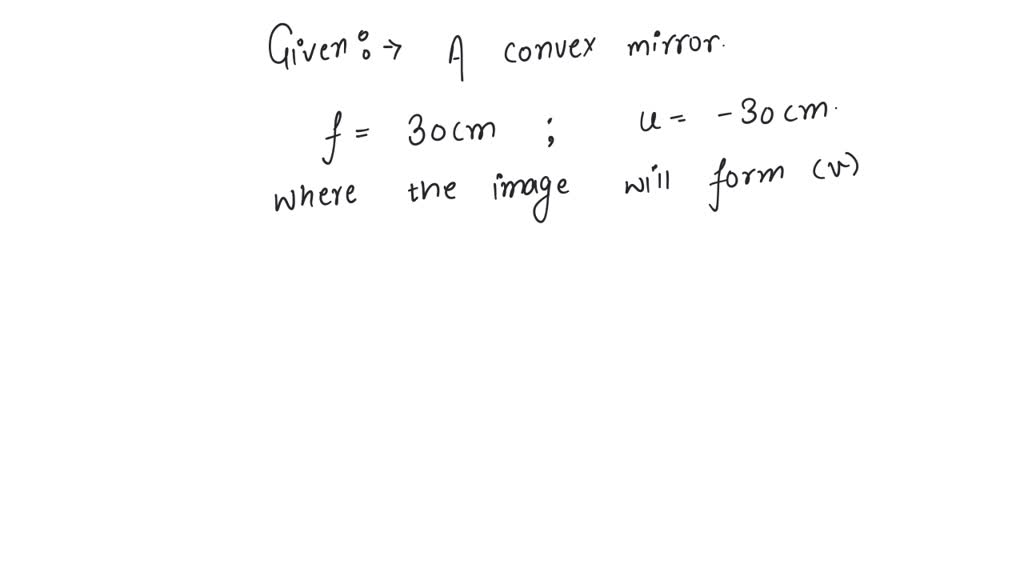 Given :→ A convex mirror.
f = 30cm ; u = -30cm.
where the image will form (v)